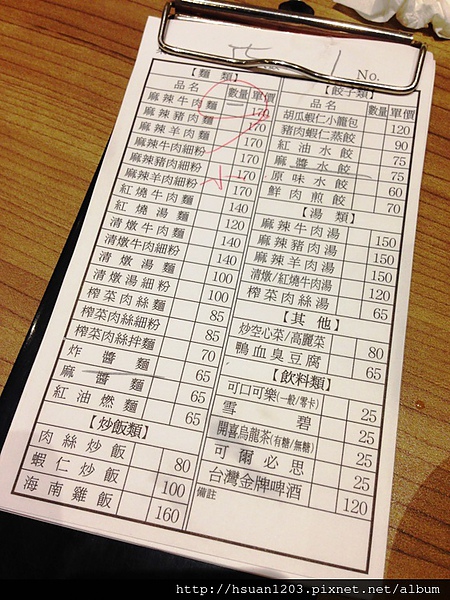 No.
【麵類】
品名 數量 單價
麻辣牛肉麵 170
麻辣豬肉麵 170
麻辣羊肉麵 170
麻辣牛肉細粉 170
麻辣豬肉細粉 170
麻辣羊肉細粉 170
紅燒牛肉麵 140
紅燒湯麵 120
清燉牛肉麵 140
清燉牛肉細粉 140
清燉湯麵 100
清燉湯細粉 100
榨菜肉絲麵 85
榨菜肉絲細粉 85
榨菜肉絲拌麵 70
炸醬麵 65
麻醬麵 65
紅油燃麵 65
【炒飯類】
肉絲炒飯 80
蝦仁炒飯 100
海南雞飯 160
【餃子類】
品名 數量 單價
胡瓜蝦仁小籠包 120
豬肉蝦仁蒸餃 90
紅油水餃 75
麻醬水餃 75
原味水餃 60
鮮肉煎餃 70
【湯類】
麻辣牛肉湯 150
麻辣豬肉湯 150
麻辣羊肉湯 150
清燉/紅燒牛肉湯 120
榨菜肉絲湯 65
【其他】
炒空心菜/高麗菜 80
鴨血臭豆腐 65
【飲料類】
可口可樂(一般/零卡) 25
雪碧 25
開喜烏龍茶(有糖/無糖) 25
可爾必思 25
台灣金牌啤酒 120
備註
http://hsuan1203.pixnet.net/album